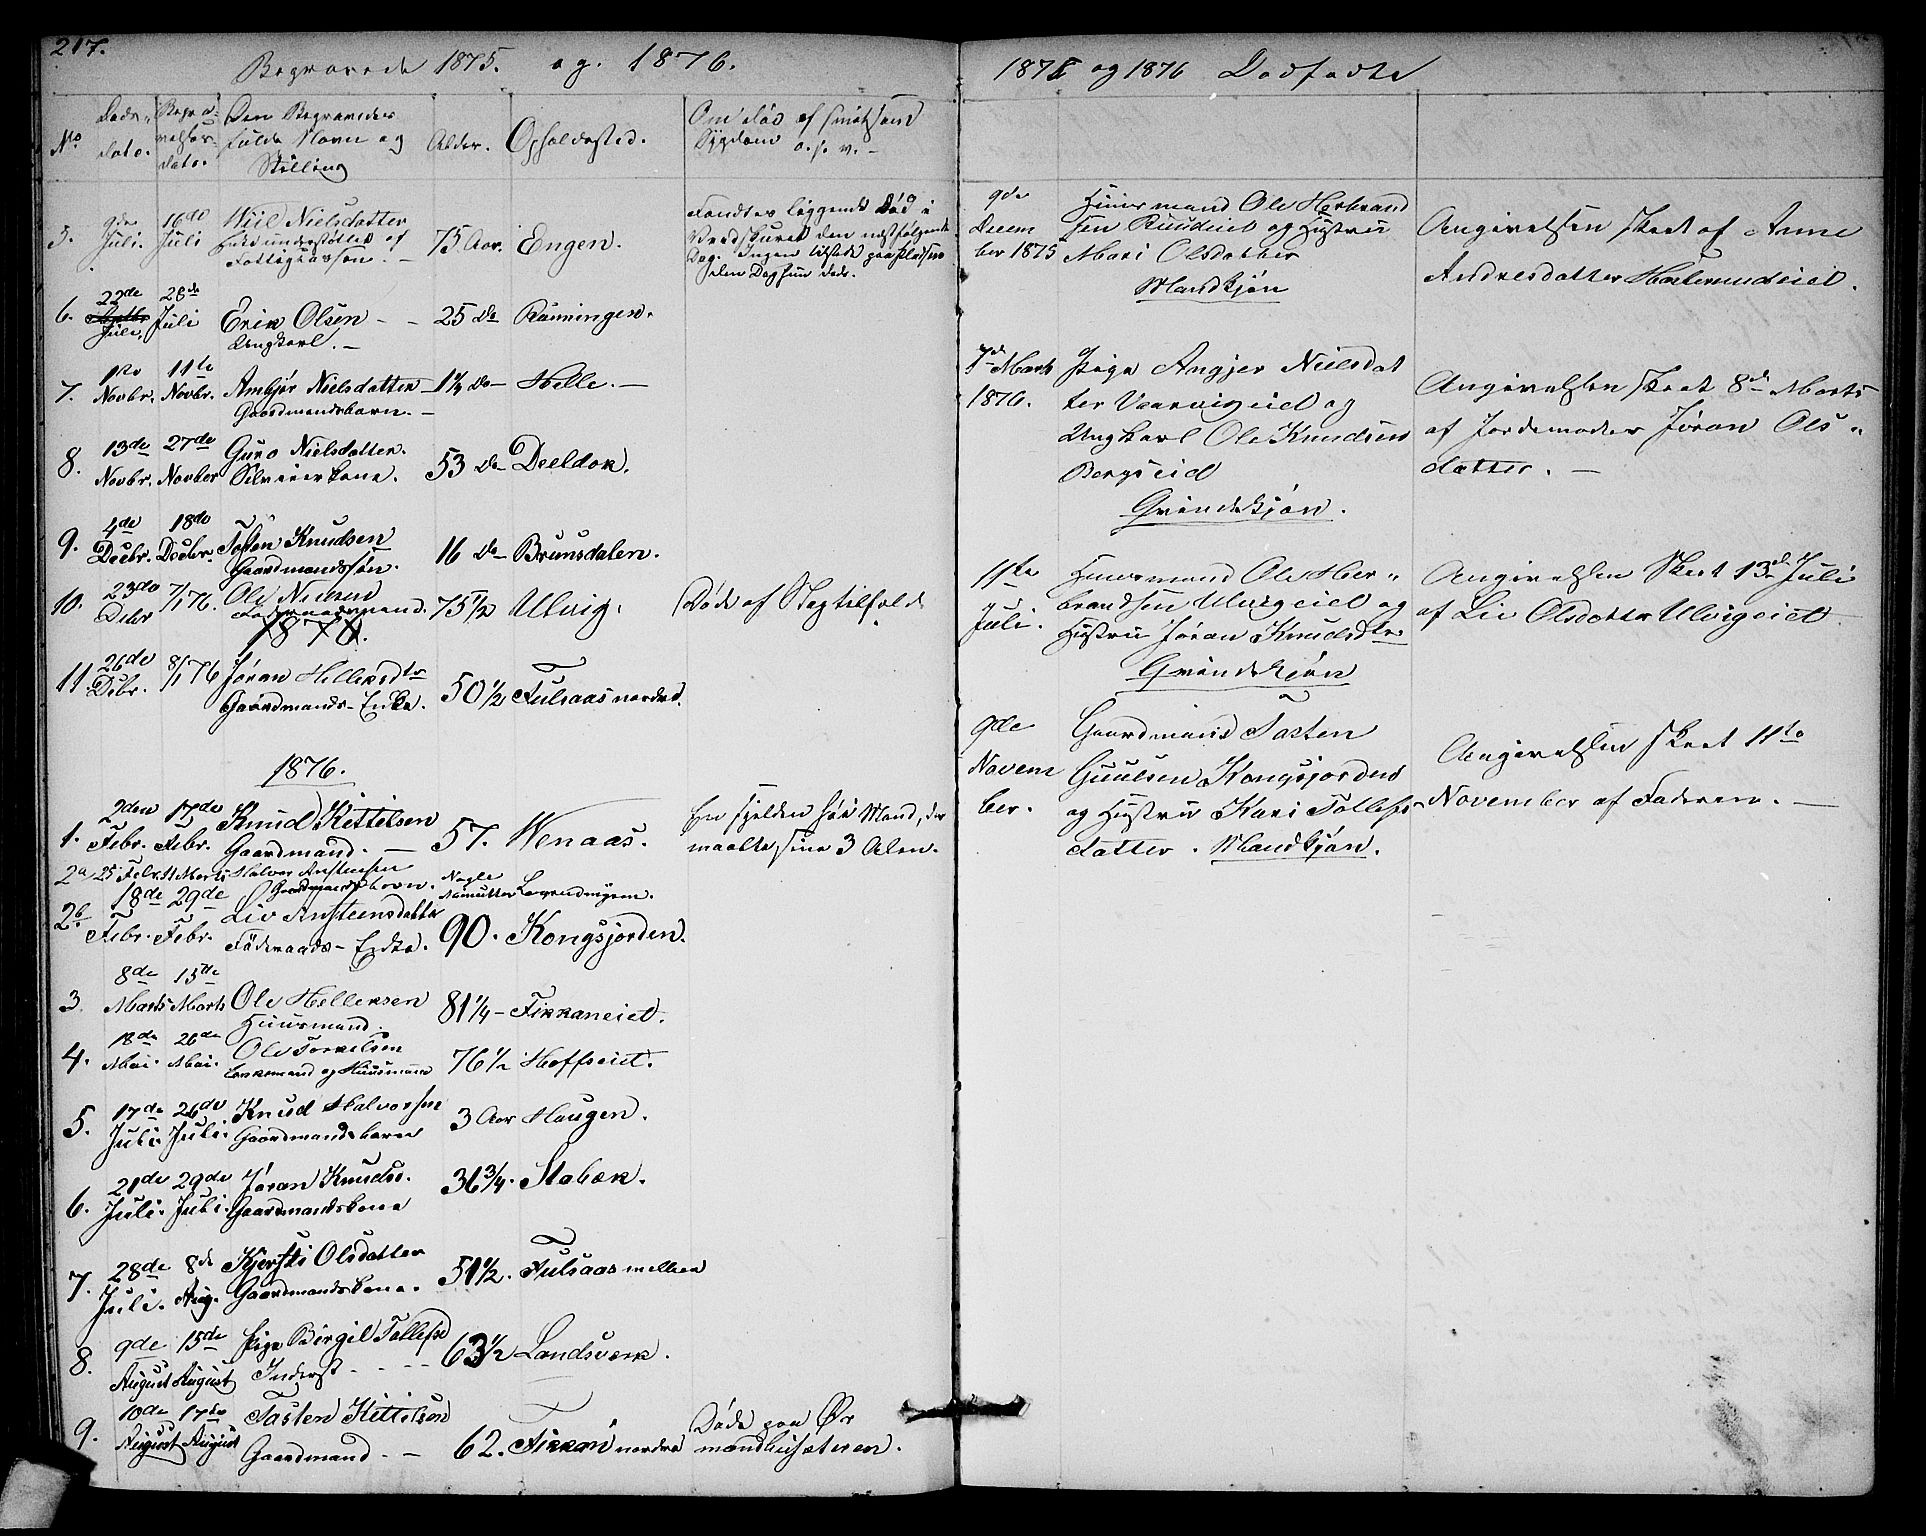 217.
Begravede 1875. og. 1876.
No
Døds-
dato.
Begra-
velses-
dato.
Den Begravedes
fulde Navn og
Stilling
Alder.
Opholdssted.
Om død af smitsom
Sygdom o. s. v. -
5.
9de
Juli.
16de
Juli
Niil Nielsdatter
understøttet af
Fattigkassen. -
75 Aar.
Engen.
Fandtes liggende død i
Vedskuret den næstfølgende
Dag. Ingen tilstede paa Pladsen
den Dag hun døde.
6.
22de
Juli,
28de
Juli
Erik Olsen - -
Ungkarl. -
25 Do
Rønningen.
7.
1ste
Novbr.
11te
Novbr.
Ambjør Nielsdatter
Gaardmandsbarn. -
1¼ Do -
Helle. -
8.
13de
Novbr.
27de
Novber
Guro Nielsdatter.
Selveierkone.
53 Do
Deeldok.
9.
4de
Decbr.
18de
Decbr.
Tosten Knudsen
Gaardmandssøn.
16 Do -
Brunsdalen.
10.
23de
Debr
7/1 76.
Ole Nielsen
Føderaadsmand.
75 1/2
Ulvig.
Døde af Slagtilfælde
1876.
11.
26de
Debr.
8/1 76
Jøran Helleksdtr
Gaardmands-Enke.
50 1/2
Tulsaas nordre.
1876.
1.
2den
Febr.
17de
Febr.
Knud Kittilsen
Gaardmand. -
57.
Wenaas.
En sjelden høi Mand, der
maalte sine 3 Alen.
2a
25 Febr.
11 Marts
Halvor Anstensen
Gaardmandsbarn.
Nogle
Minutter
Lavrandmoen.
2b
18de
Febr.
29de
Febr.
Liv Ansteensdatter
Føderaads-Enke.
90.
Kongsjorden.
3.
8de
Marts
15de
Marts
Ole Helleksen
Huusmand.
81 1/4 -
Fikkaneiet.
4.
18de
Mai.
26de
Mai.
Ole Torkelsen
Enkemand og Huusmand
76 1/2
Hoffseiet.
5.
17de
Juli.
26de
Juli.
Knud Halvorsen
Gaardmandsbarn
3 Aar
Haugen.
6.
21de
Juli.
29de
Juli.
Jøran Knudsd.
Gaardmandskone
36 3/4.
Stabæk.
7.
28de
Juli.
8de
Aug.
Kjersti Olsdatter
Gaardmandskone.
51 1/2.
Tulsaas mellem
8.
9de
August
15de
August
Pige Birgit Tollefsd
Inderst - - -
63 1/2
Landsverk.
9.
10de
August
17de
August
Tosten Kittilsen
Gaardmand - -
62.
Fikkan nordre
Døde paa Ør
mandhusæteren.
1875 og 1876 Dødfødte
9de
Decem
ber 1875
Huusmand Ole Herbrand
sen Ruudeiet og Hustru
Mari Olsdatter
Mandkjøn
Angivelsen skeet af Anne
Andresdatter Hasterundeiet.
7de Marts
1876.
Pige Angjer Nielsdat
ter Vaarvigeiet og
Ungkarl Ole Knudsen
Bergseid
Qvindekjøn.
Angivelsen skeet 8de Marts
af Jordemoder Jøran Ols-
datter. -
11te
Juli.
Huusmand Ole Her-
brandsen Ulvigeiet og
Hustru Jøran Knudsdtr
Qvindekjøn
Angivelsen skeet 13de Juli
af Liv Olsdatter Ulvigeiet.
9de
Novem
ber.
Gaardmand Tosten
Guulsen Kongsjorden
og Hustru Kari Tollefs-
datter. Mandkjøn.
Angivelsen skeet 11te
November af Faderen. -